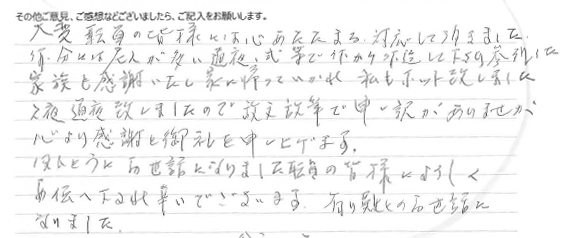 その他ご意見、ご感想などございましたら、ご記入をお願いします。
大変職員の皆様には心あたたまる対応して頂きました
何分には老人が多い通夜、式等で何から何迄して下され参列した
家族も感謝いたし家に帰っていかれ 私もホット致しました
2夜通夜致しましたので 誤文誤筆で申し訳がありませんが
心より感謝と御礼を申し上げます。
ほんとうにお世話になりました職員の皆様によろしく
お伝へ下され幸いでございます。有り難とのお世話に
なりました。